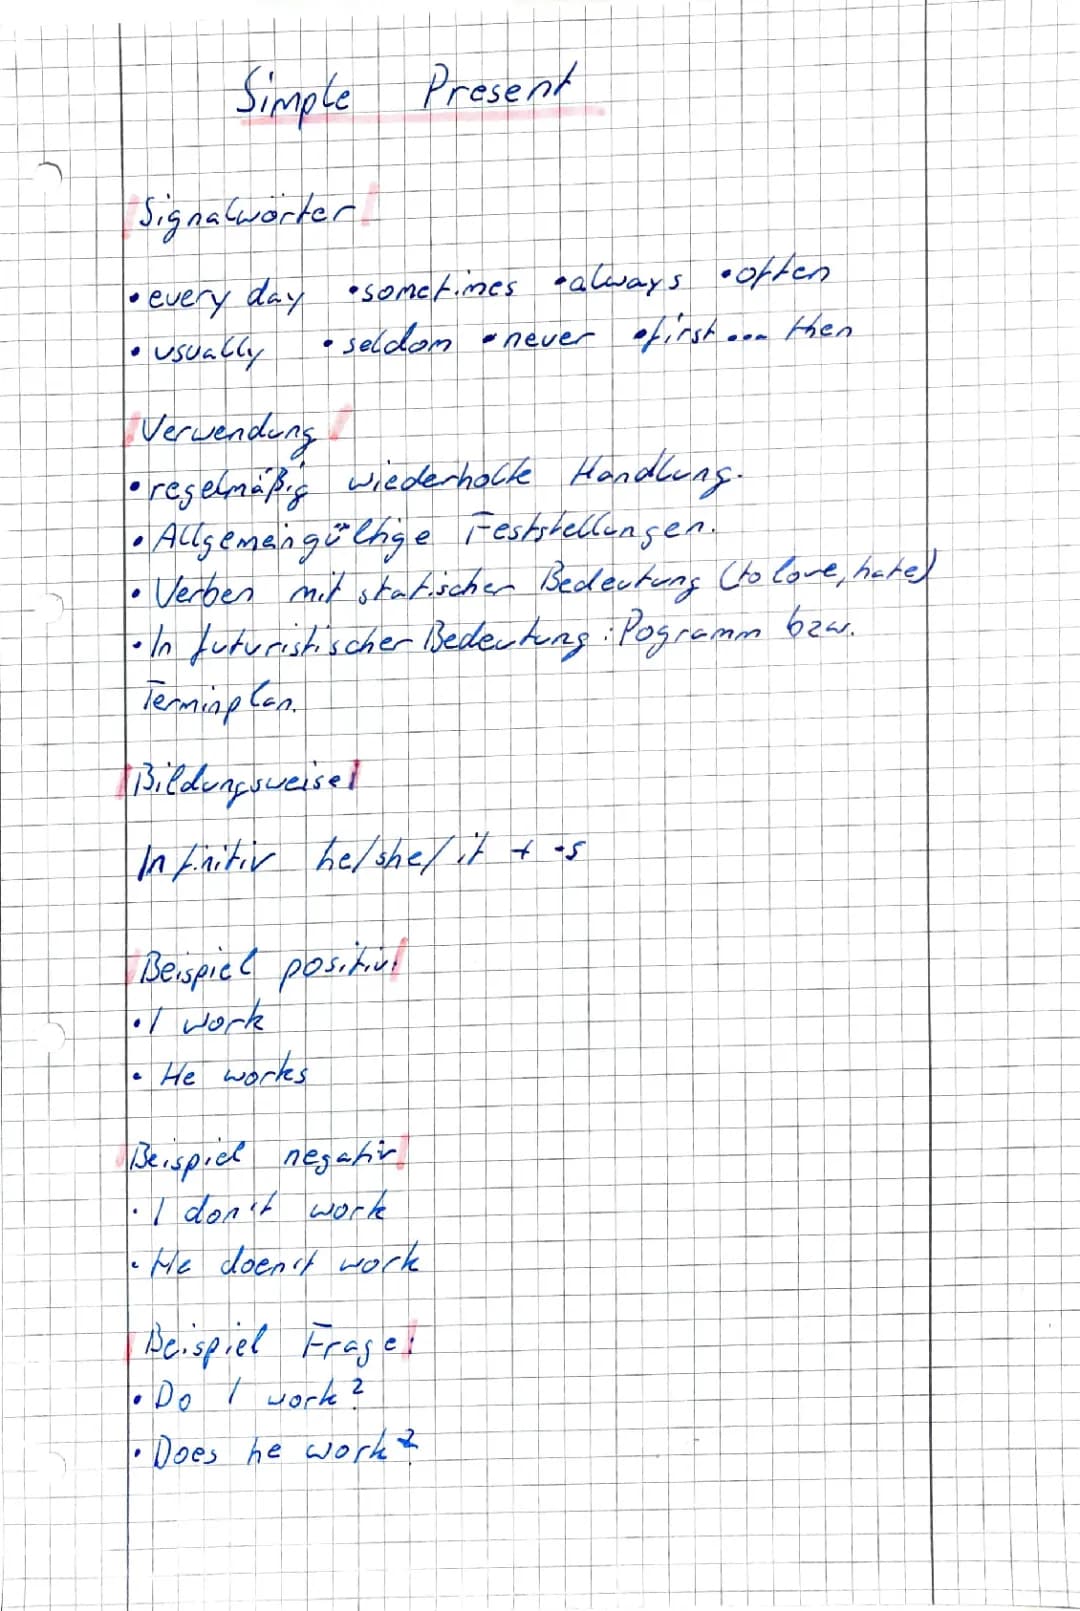 Simple Present
Signalwörter
• every day • sometimes • always • often
• usually • seldom • never • first ... then
Verwendung
• regelmäßig wiederholte Handlung.
• Allgemeingültige Feststellungen.
• Verben mit statischer Bedeutung (to love, hate)
• In futuristischer Bedeutung: Pogramm bzw.
Terminplan.
Bildungsweise
Infinitiv he/she/it + -s
Beispiel positiv
• I work
• He works
Beispiel negativ
• I don't work
• He doen't work
Beispiel Frage
• Do I work?
• Does he work?